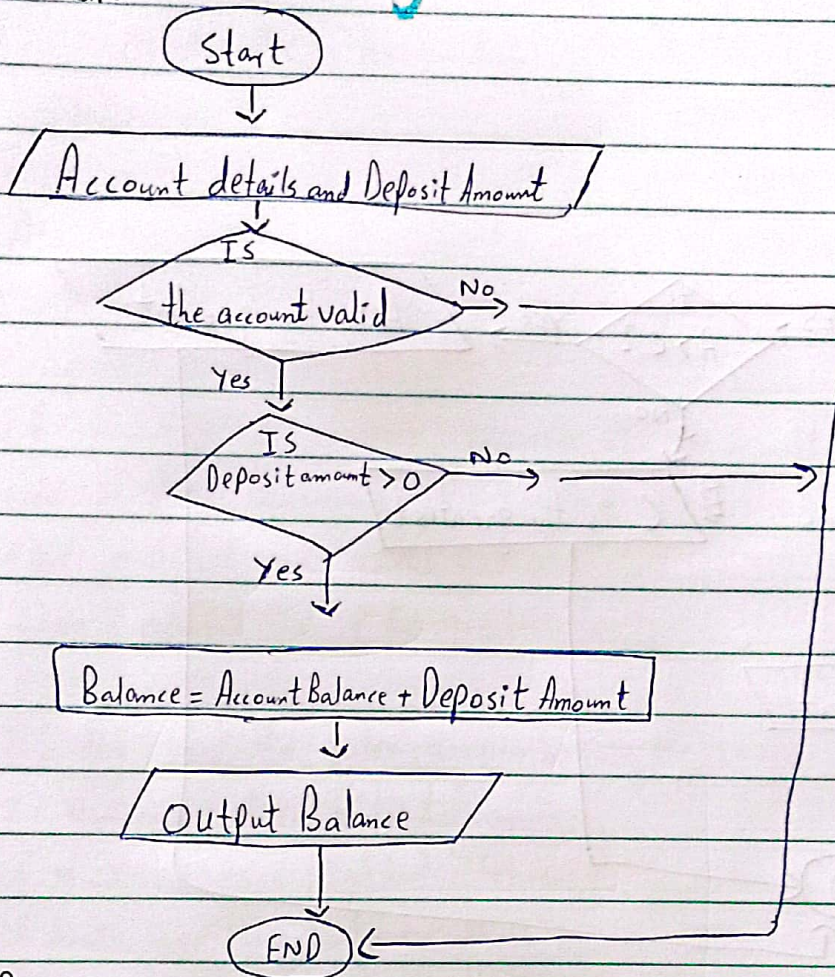 Start
Account details and Deposit Amount
IS
the account valid
No
Yes
IS
Deposit amount > 0
No
Yes
Balance = Account Balance + Deposit Amount
Output Balance
END